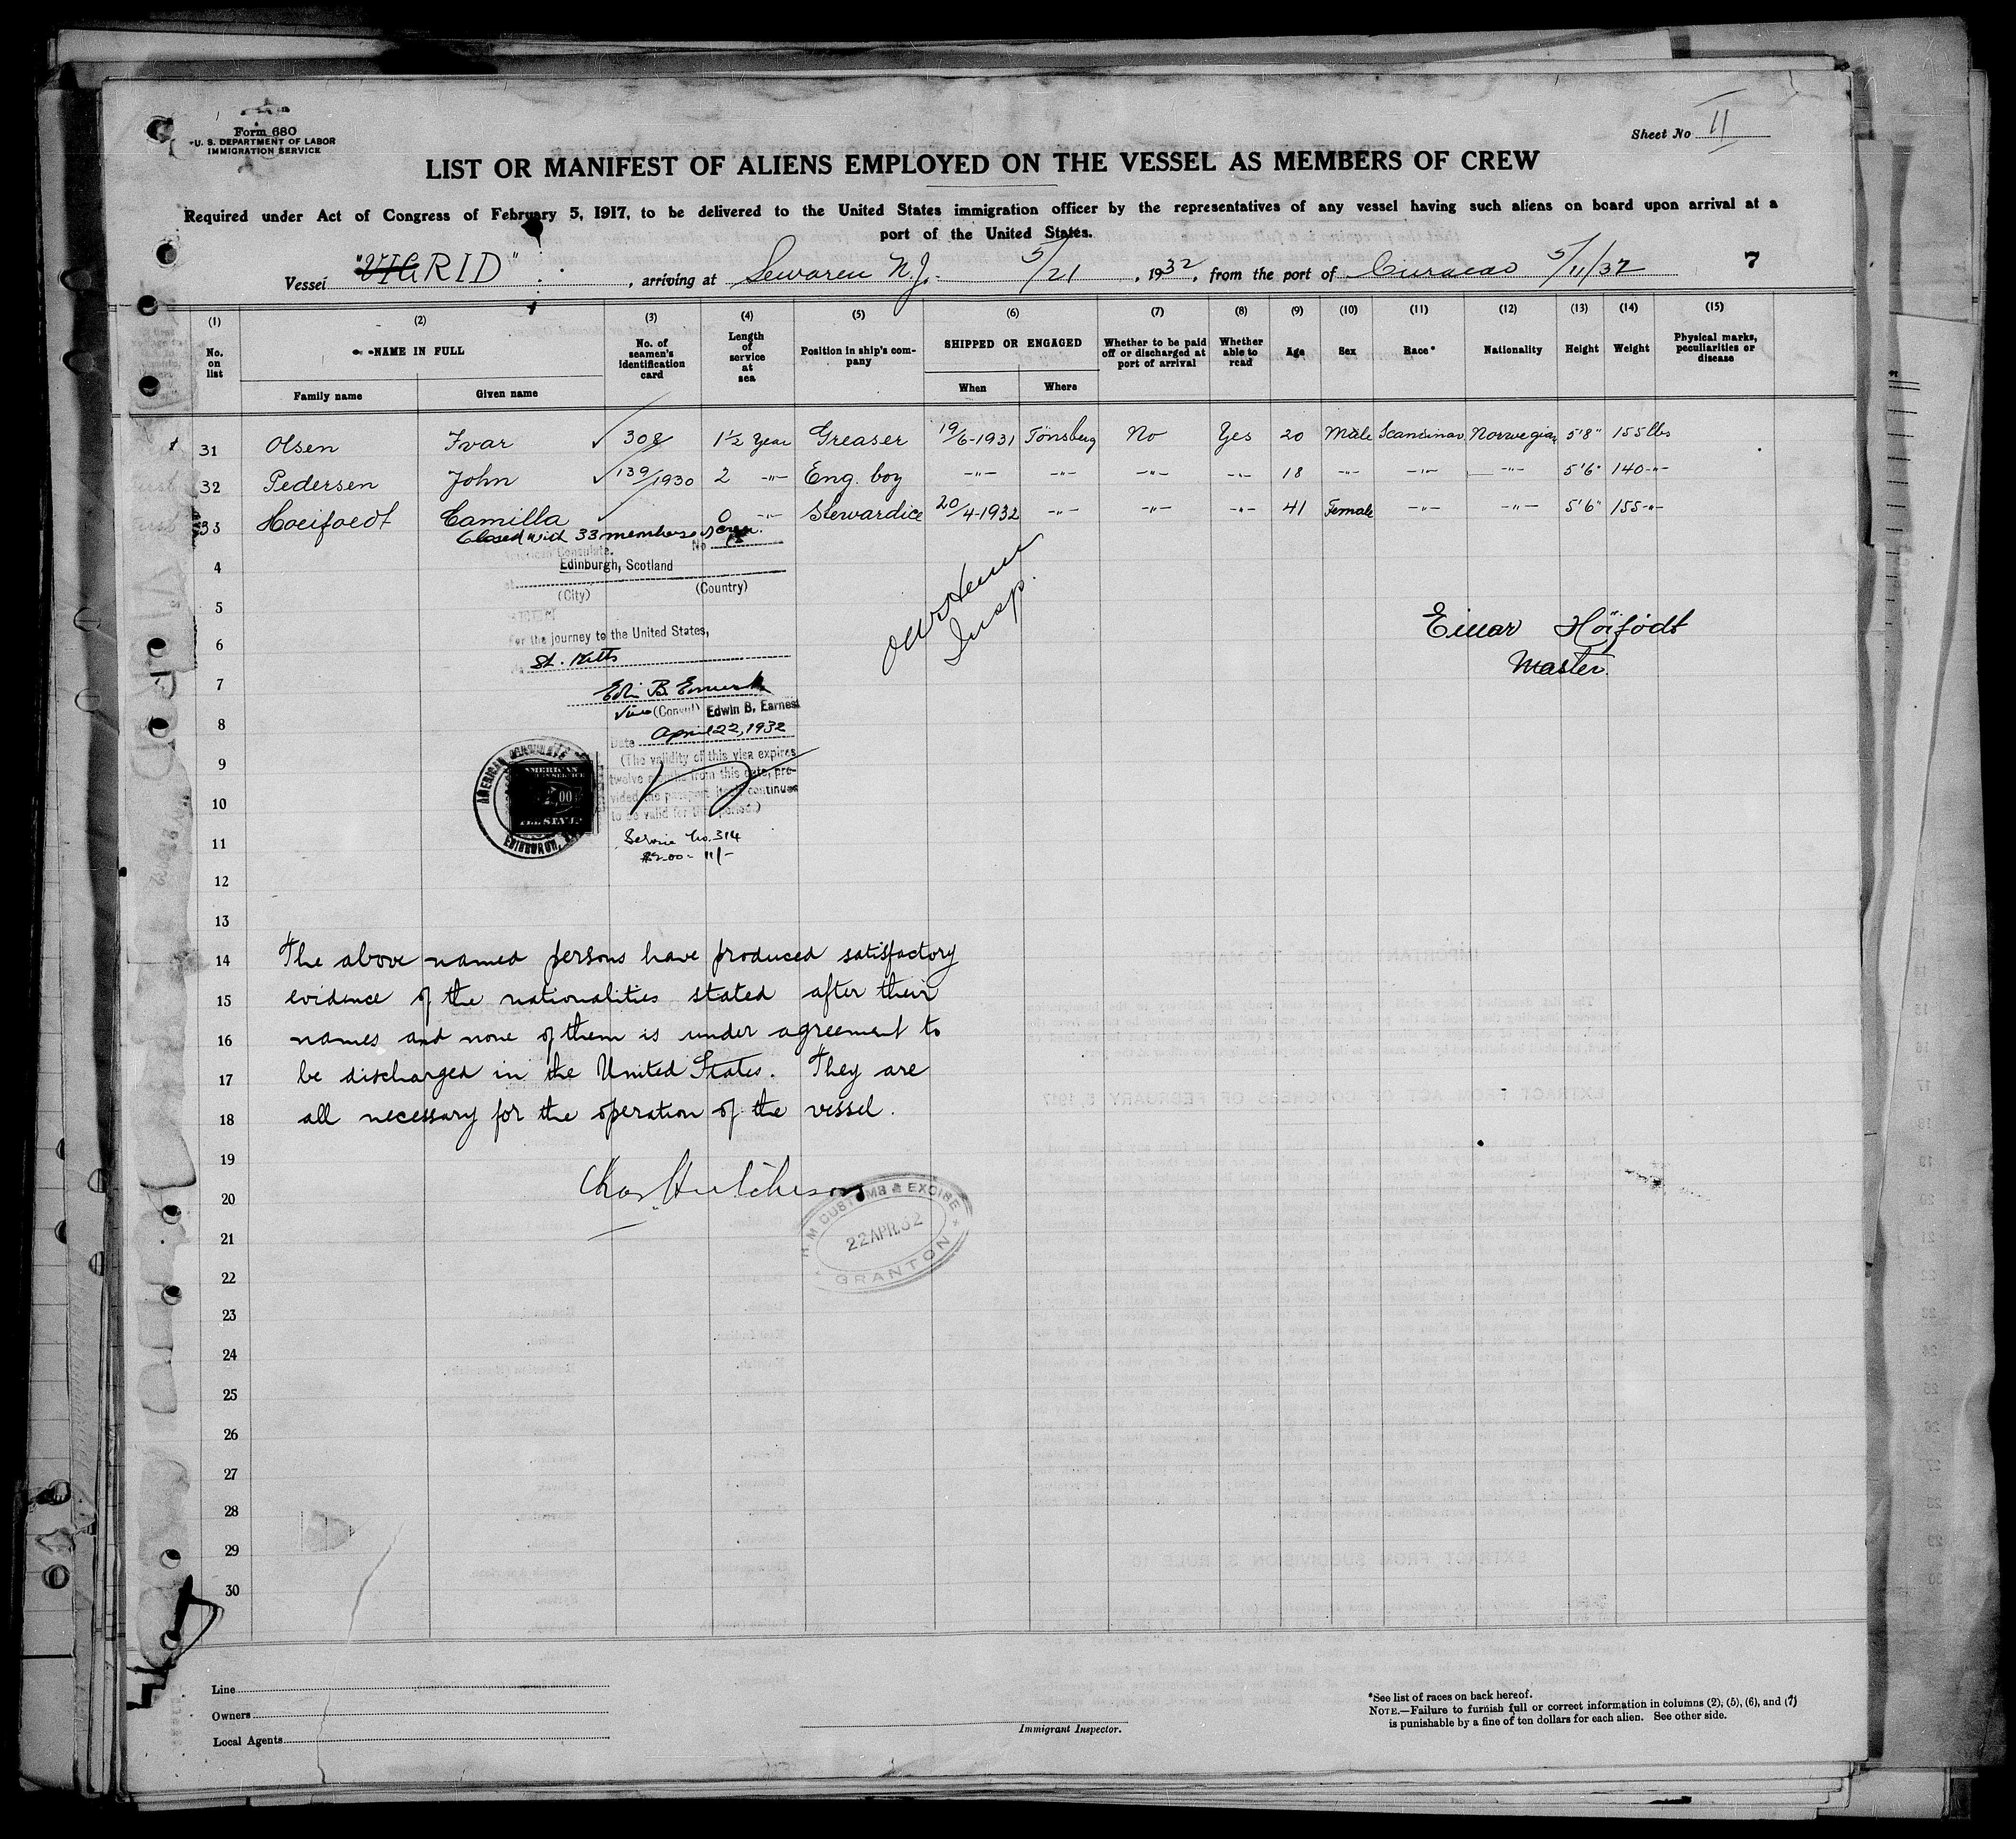 Form 680
U. S. DEPARTMENT OF LABOR
IMMIGRATION SERVICE
Sheet No II
LIST OR MANIFEST OF ALIENS EMPLOYED ON THE VESSEL AS MEMBERS OF CREW
Required under Act of Congress of February 5, 1917, to be delivered to the United States immigration officer by the representatives of any vessel having such aliens on board upon arrival at a
port of the United States.
Vessel "VIGRID", arriving at Sewaren N.J. 5/21, 1932, from the port of Curacao 5/11/32 7
(1) (2) (3) (4) (5) (6) (7) (8) (9) (10) (11) (12) (13) (14) (15)
No. on list NAME IN FULL No. of seamen's identification card Length of service at sea Position in ship's company SHIPPED OR ENGAGED Whether to be paid off or discharged at port of arrival Whether able to read Age Sex Race* Nationality Height Weight Physical marks, peculiarities or disease
Family name Given name When Where
31 Olsen Ivar 308 1½ Year Greaser 19/6-1931 Tönsberg No Yes 20 Male Scandinav Norwegian 5'8" 155 lbs
32 Pedersen John 139/1930 2 -"- Eng. boy -"- -"- -"- -"- 18 -"- -"- -"- 5'6" 140 -"-
33 Hoeifoedt Camilla 0 -"- Stewardice 20/4-1932 -"- -"- -"- 41 Female -"- -"- 5'6" 155 -"-
Closed with 33 members of crew.
American Consulate. No
4 Edinburgh, Scotland
(City) (Country)
5
for the journey to the United States,
6 St. Kitts
Insp.
Einar Höifödt
Master.
7
Vice (Consul) Edwin B. Earnest
8 Date April 22, 1932
9 (The validity of this visa expires
twelve months from this date, pro-
10 vided the passport itself continues
to be valid for that period.)
AMERICAN CONSULATE
EDINBURGH,
AMERICAN
11 Service No. 314
$2.00 - 11/-
12
13
14 The above named persons have produced satisfactory
15 evidence of the nationalities stated after their
16 names and none of them is under agreement to
17 be discharged in the United States. They are
18 all necessary for the operation of the vessel.
19
20 Chas Hutcheson
H M CUSTOMS & EXCISE
21 22 APR.32
GRANTON
22
23
24
25
26
27
28
29
30
Line
Owners
Local Agents
Immigrant Inspector.
*See list of races on back hereof.
NOTE.—Failure to furnish full or correct information in columns (2), (5), (6), and (7)
is punishable by a fine of ten dollars for each alien. See other side.